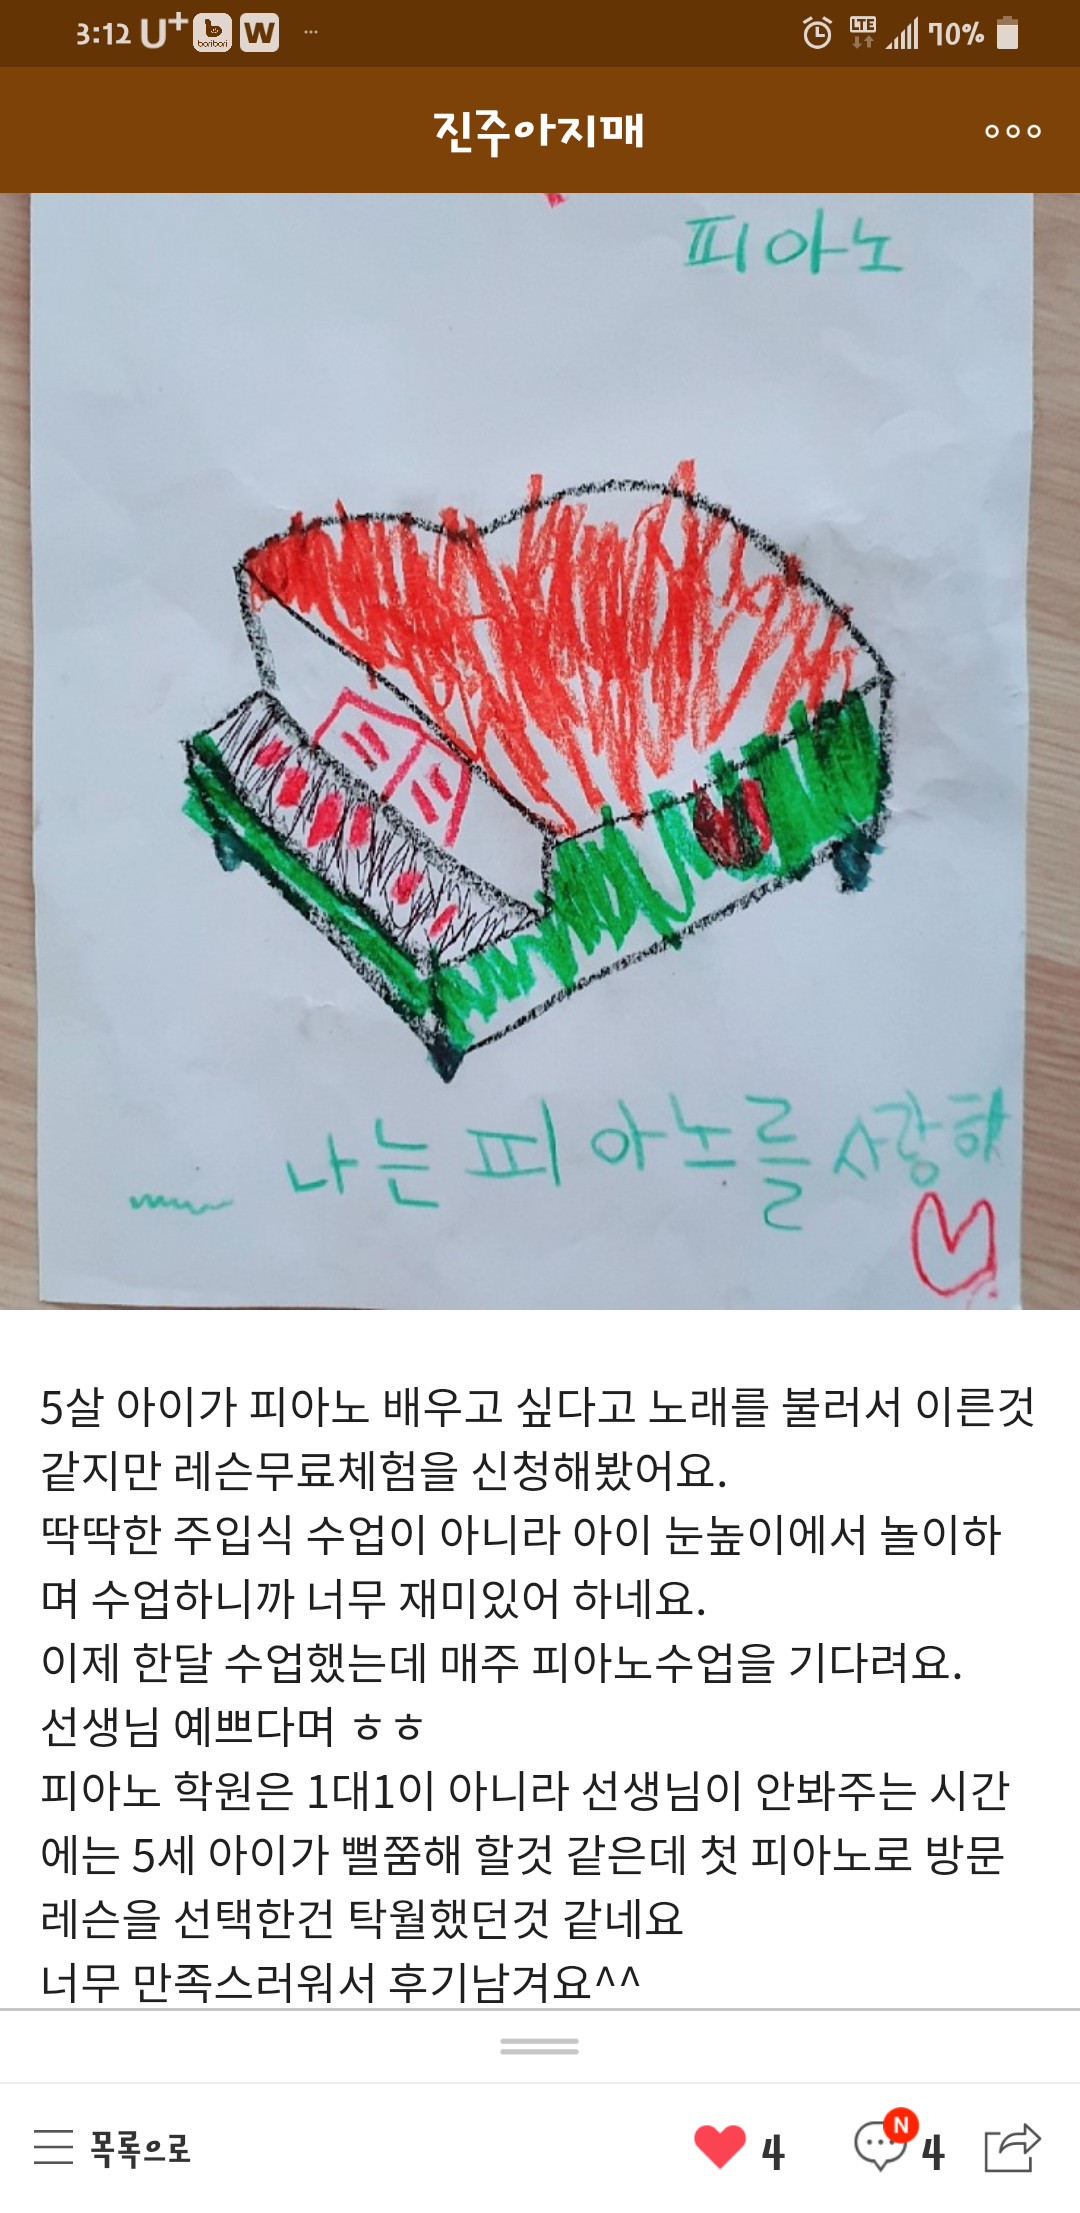 3:12 U+ boribori W ... LTE 70%
진주아지매
피아노
나는 피아노를 사랑해
5살 아이가 피아노 배우고 싶다고 노래를 불러서 이른것
같지만 레슨무료체험을 신청해봤어요.
딱딱한 주입식 수업이 아니라 아이 눈높이에서 놀이하
며 수업하니까 너무 재미있어 하네요.
이제 한달 수업했는데 매주 피아노수업을 기다려요.
선생님 예쁘다며 ㅎㅎ
피아노 학원은 1대1이 아니라 선생님이 안봐주는 시간
에는 5세 아이가 뻘쭘해 할것 같은데 첫 피아노로 방문
레슨을 선택한건 탁월했던것 같네요
너무 만족스러워서 후기남겨요^^
목록으로 4 N 4